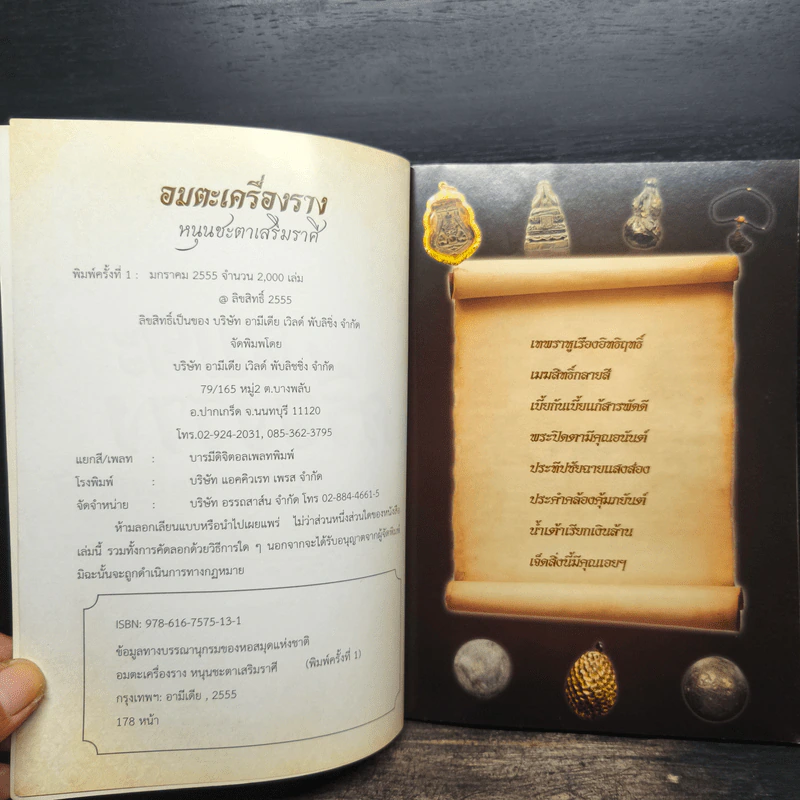 อมตะเครื่องราง
หนุนชะตาเสริมราศี
พิมพ์ครั้งที่ 1 : มกราคม 2555 จำนวน 2,000 เล่ม
@ ลิขสิทธิ์ 2555
ลิขสิทธิ์เป็นของ บริษัท อามีเดีย เวิลด์ พับลิชิ่ง จำกัด
จัดพิมพ์โดย
บริษัท อามีเดีย เวิลด์ พับลิชชิ่ง จำกัด
79/165 หมู่2 ต.บางพลับ
อ.ปากเกร็ด จ.นนทบุรี 11120
โทร.02-924-2031, 085-362-3795
แยกสี/เพลท : บารมีดิจิตอลเพลทพิมพ์
โรงพิมพ์ : บริษัท แอคคิวเรท เพรส จำกัด
จัดจำหน่าย : บริษัท อรรถสาส์น จำกัด โทร 02-884-4661-5
ห้ามลอกเลียนแบบหรือนำไปเผยแพร่ ไม่ว่าส่วนหนึ่งส่วนใดของหนังสือ
เล่มนี้ รวมทั้งการคัดลอกด้วยวิธีการใด ๆ นอกจากจะได้รับอนุญาตจากผู้จัดพิมพ์
มิฉะนั้นจะถูกดำเนินการทางกฎหมาย
ISBN: 978-616-7575-13-1
ข้อมูลทางบรรณานุกรมของหอสมุดแห่งชาติ
อมตะเครื่องราง หนุนชะตาเสริมราศี (พิมพ์ครั้งที่ 1)
กรุงเทพฯ: อามีเดีย , 2555
178 หน้า
เทพราหูเรืองอิทธิฤทธิ์
เมฆสิทธิ์กลายสี
เบี้ยกันเบี้ยแก้สารพัดดี
พระปิดตามีคุณอนันต์
ประทีปชัยฉายแสงส่อง
ประคำคล้องคุ้มภยันต์
น้ำเต้าเรียกเงินล้าน
เจ็ดสิ่งนี้มีคุณเอยฯ